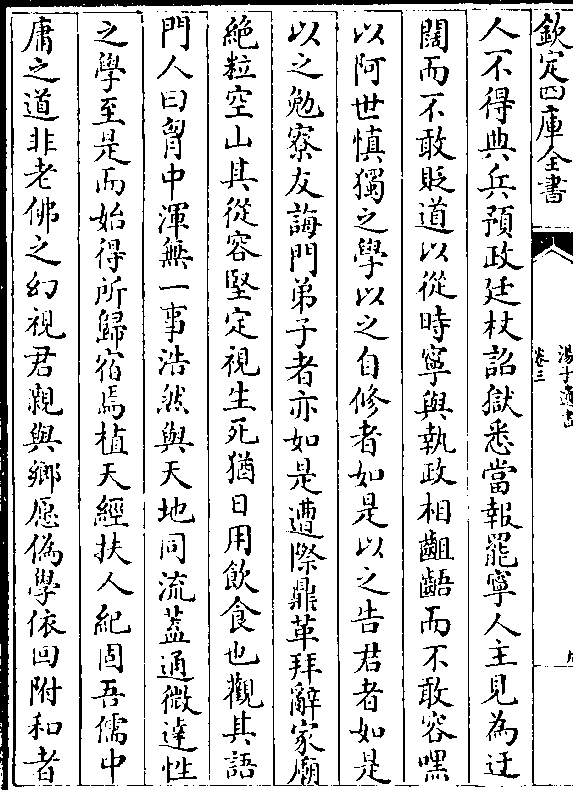 欽定四庫全書
湯子遺書
卷三
人不得典兵預政廷杖詔獄悉當報罷寧人主見為迂
闊而不敢貶道以從時寧與執政相齟齬而不敢容嘿
以阿世慎獨之學以之自修者如是以之告君者如是
以之勉寮友誨門弟子者亦如是遭際鼎革拜辭家廟
絶粒空山其從容堅定視生死猶日用飲食也觀其語
門人曰胷中渾無一事浩然與天地同流蓋通微達性
之學至是而始得所歸宿焉植天經扶人紀固吾儒中
庸之道非老佛之幻視君親與鄉愿偽學依回附和者